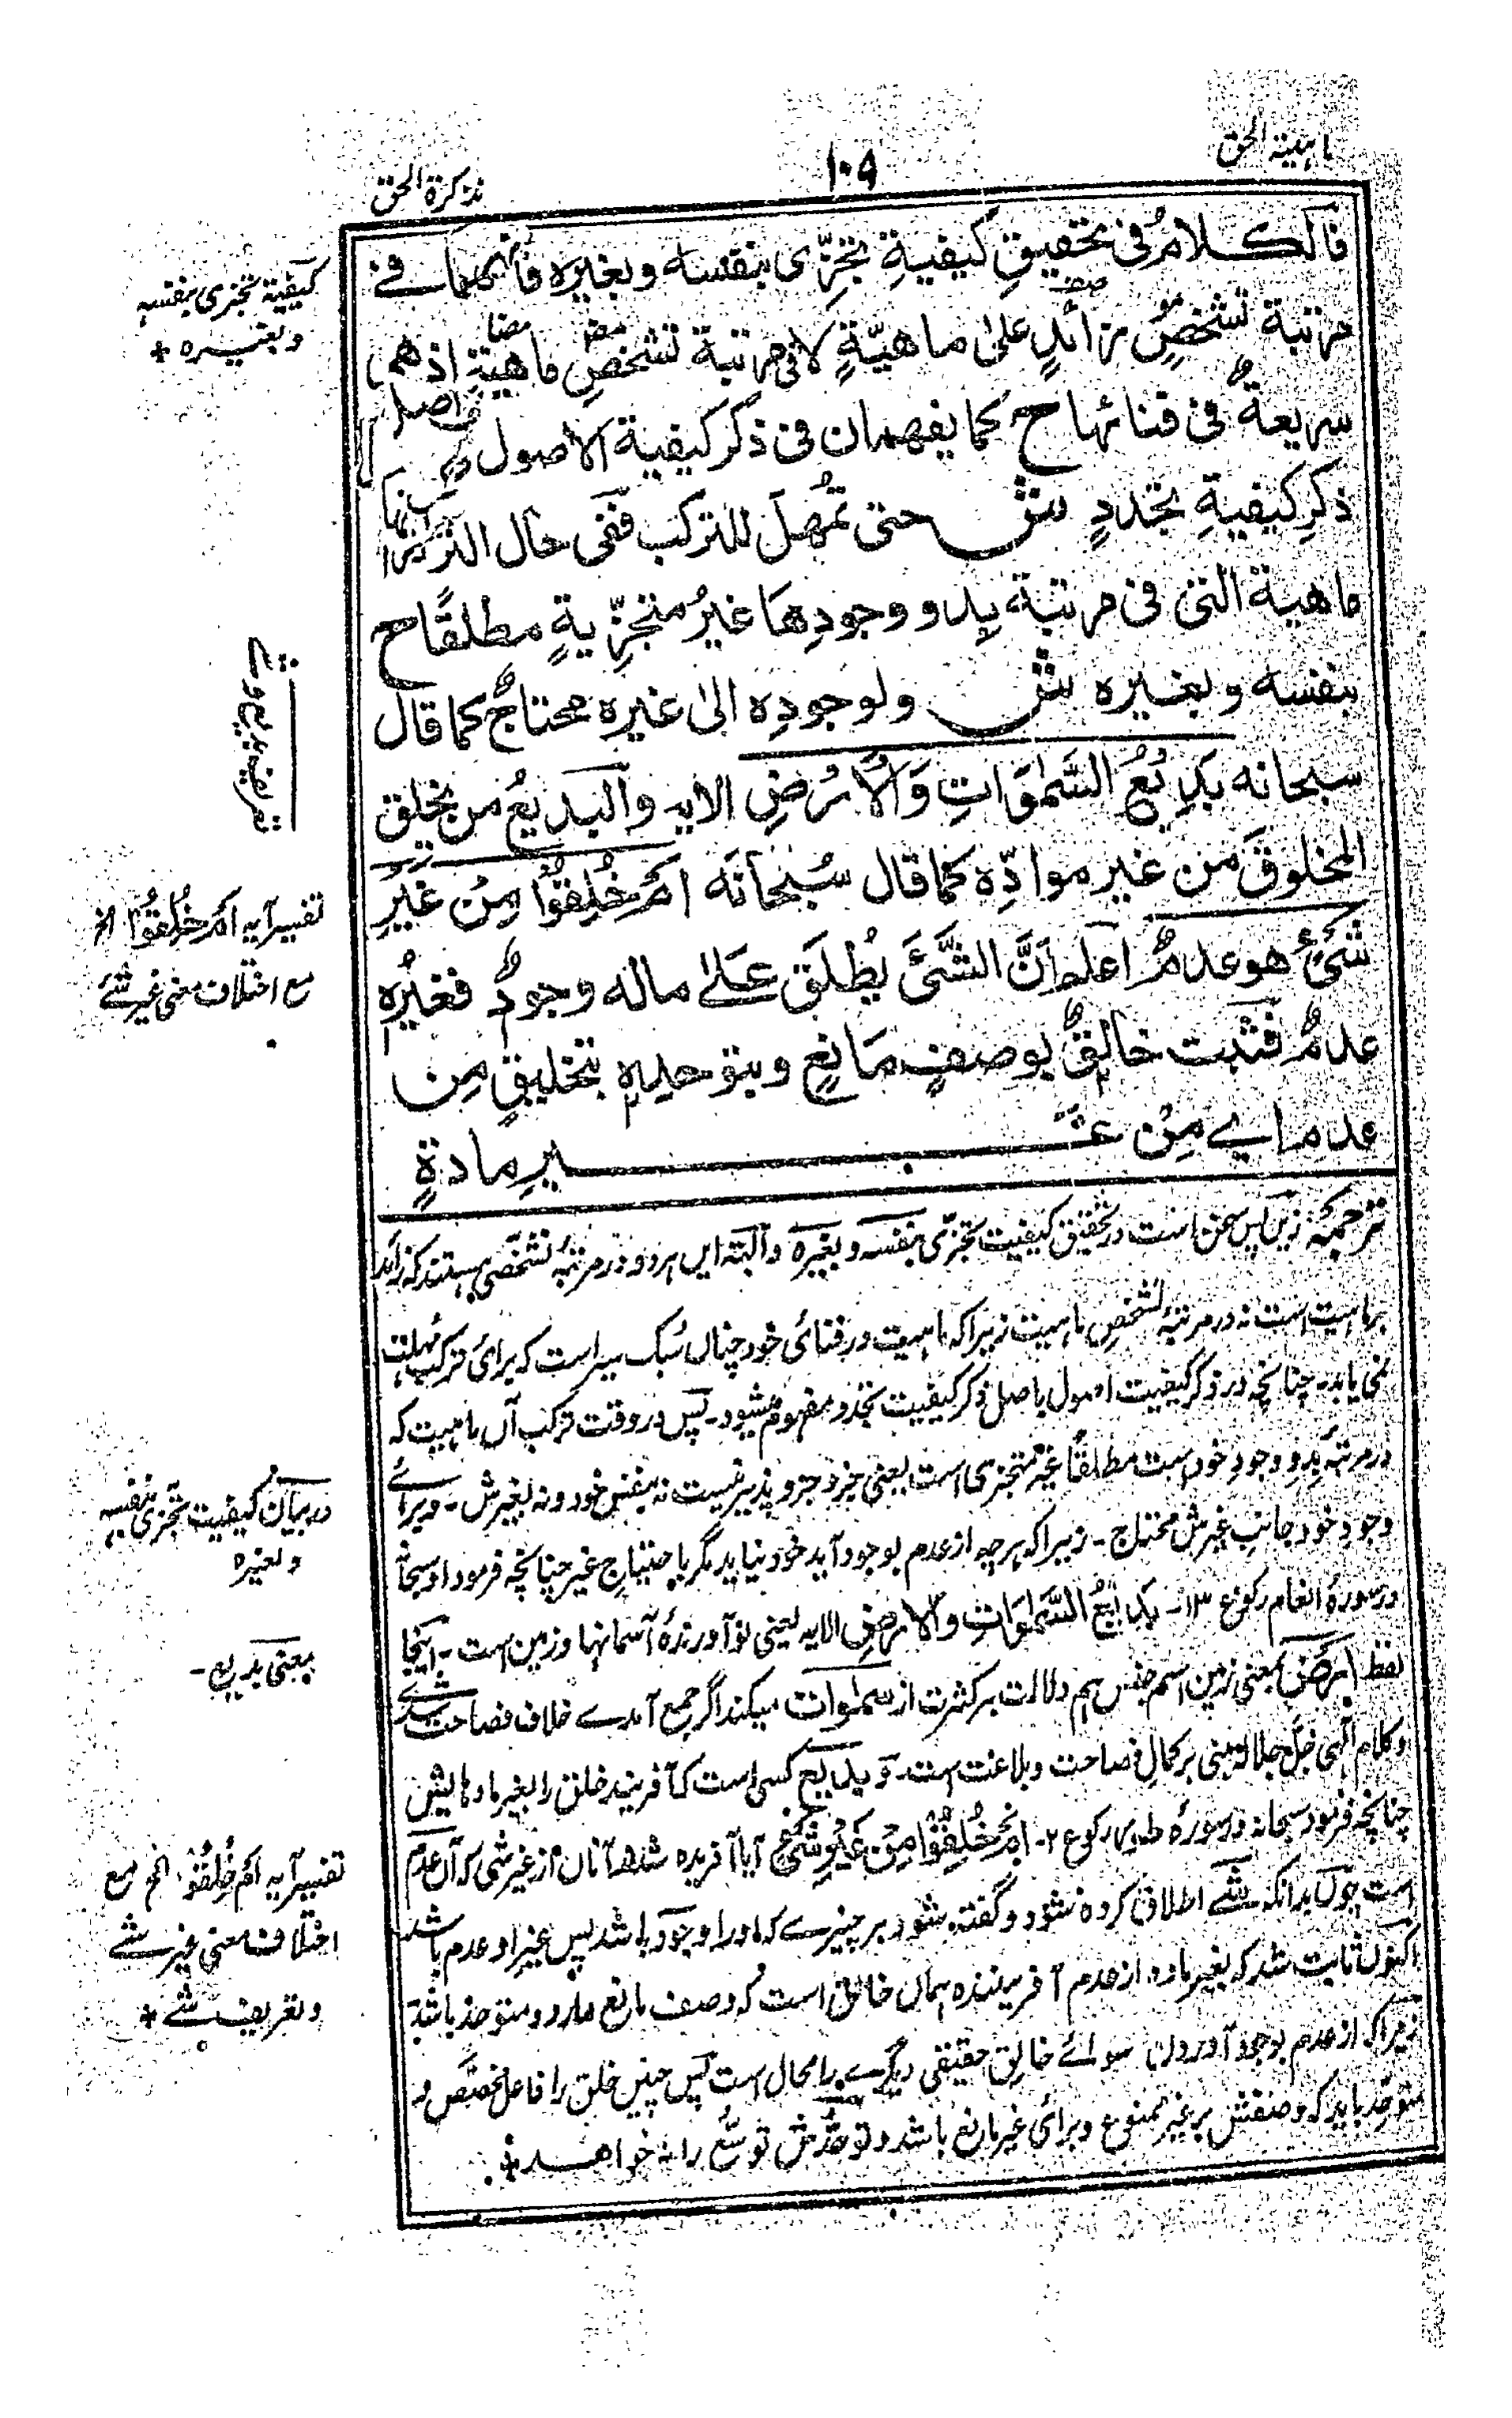 ماهیة الحق
۱۰۹
تذکرة الحق
فالکلامُ فی تحقیقِ کیفیةِ تجزّی بنفسه وبغیره فانهما فے
مرتبة تشخصٍ زائدٍ علیٰ ماهیّةٍ لا فی مرتبة تشخصِ ماهیةٍ اذ هی
سریعةٌ فی فنائها ح کما یفهمان فی ذکر کیفیة الاصول
ذکرِ کیفیةِ تجددٍ ش حتی تمُهل للترکب ففی حال الترکب
ماهیة التی فی مرتبة بدو وجودِها غیرُ متجزّیةٍ مطلقًا ح
بنفسه وبغیره ش ولوجودِه الیٰ غیره محتاجٌ کما قال
سبحانه بَدِیْعُ السَّمٰوَاتِ وَالْاَرْضِ الایه والبدیعُ من یخلق
المخلوقَ من غیر موادِّه کما قال سُبْحَانَه اَمْ خُلِقُوْا مِنْ غَیْرِ
شَیْءٍ هو عدمٌ اعلم اَنَّ الشَّیْءَ یُطْلَق عَلےٰ ماله وجودٌ فغیرُه
عدمٌ فثبت خالقٌ بوصفٍ مَانعٍ وبتوحدِهٖ بتخلیقٍ مِن
عدم اے مِنْ غیرِ مادةٍ
ترجمہ زیں پس سخن است در تحقیق کیفیت تجزّی بنفسه و بغیره والبتہ ایں ہر دو در مرتبۂ تشخّصی ہستند کہ زائد
بر ماہیت است نہ در مرتبۂ تشخص ماہیت زیرا کہ ماہیت در فنائی خود چناں سُبک سیر است کہ برای ترکب مُہلت
نمی یابد چنانچہ در ذکر کیفیت اصول یا اصل ذکر کیفیت تجدد مفہوم میشود۔ پس در وقت ترکب آں ماہیت کہ
در مرتبۂ بدو وجودِ خود است مطلقًا غیر متجزی است یعنی جزو جزو پذیر نیست نہ بنفسِ خود و نہ بغیرش۔ و برائے
وجودِ خود جانبِ غیرش محتاج۔ زیرا کہ ہر چہ از عدم بوجود آید خود نیاید مگر باحتیاجِ غیر چنانچہ فرمود او سبحانہ
در سورۂ انعام رکوع ۱۳۔ بَدِیْعُ السَّمٰوَاتِ وَالْاَرْضِ الایہ یعنی نو آورندۂ آسمانہا و زمین است۔ اینجا
لفظ اَرْض بمعنی زمین اسم جنس ہم دلالت بر کثرت از سمٰوات میکند اگر جمع آمدے خلاف فصاحت شدے
و کلامِ الٰہی جلّ جلالہ مبنی بر کمالِ فصاحت و بلاغت است۔ و بدیع کسی است کہ آفریند خلق را بغیر مادہایش
چنانچہ فرمود سبحانہ در سورۂ طور رکوع ۲۔ اَمْ خُلِقُوْا مِنْ غَیْرِ شَیْءٍ آیا آفریدہ شدہ آناں از غیر شی کہ آں عدم
است چوں بدانکہ شے اطلاق کردہ شود و گفتہ شود بر چیزے کہ اورا وجود باشد پس غیرِ او عدم باشد
اکنوں ثابت شد کہ بغیر مادہ از عدم آفرینندہ ہماں خالق است کہ وصف مانع دارد و متوحد باشد
زیرا کہ از عدم بوجود آوردن سوائے خالقِ حقیقی دیگرے را محال است پس چنین خلق را فاعل مختص و
متوحّد باید کہ وصفش بر غیر ممنوع و برای غیر مانع باشد و توحُّدش توسُّع را نہ خواہد
کیفیة تجزی بنفسہ
و بغیرہ *
تعریف بدیع وشے
تفسیر آیہ اَمْ خُلِقُوْا الخ
مع اختلاف معنی غیر شئے
در بیان کیفیت تجزی بنفسہ
و بغیرہ
معنی بدیع۔
تفسیر آیہ اَمْ خُلِقُوْا الخ مع
اختلاف معنی غیر شے
و تعریف شے *